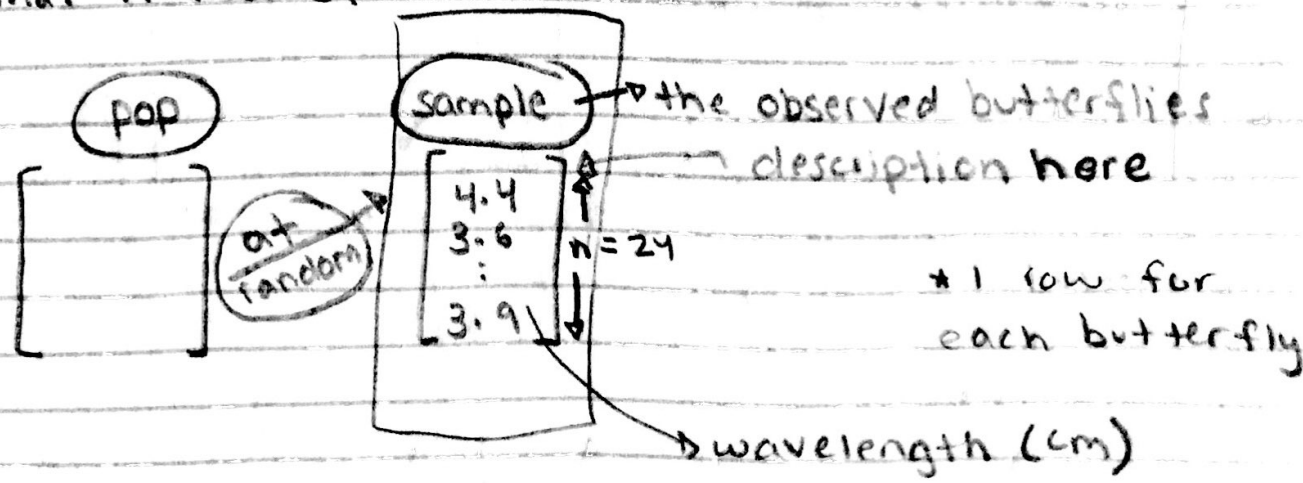 pop
sample
the observed butterflies
description here
at
random
4.4
3.6
⋮
3.9
n = 24
* 1 row for
each butterfly
wavelength (cm)